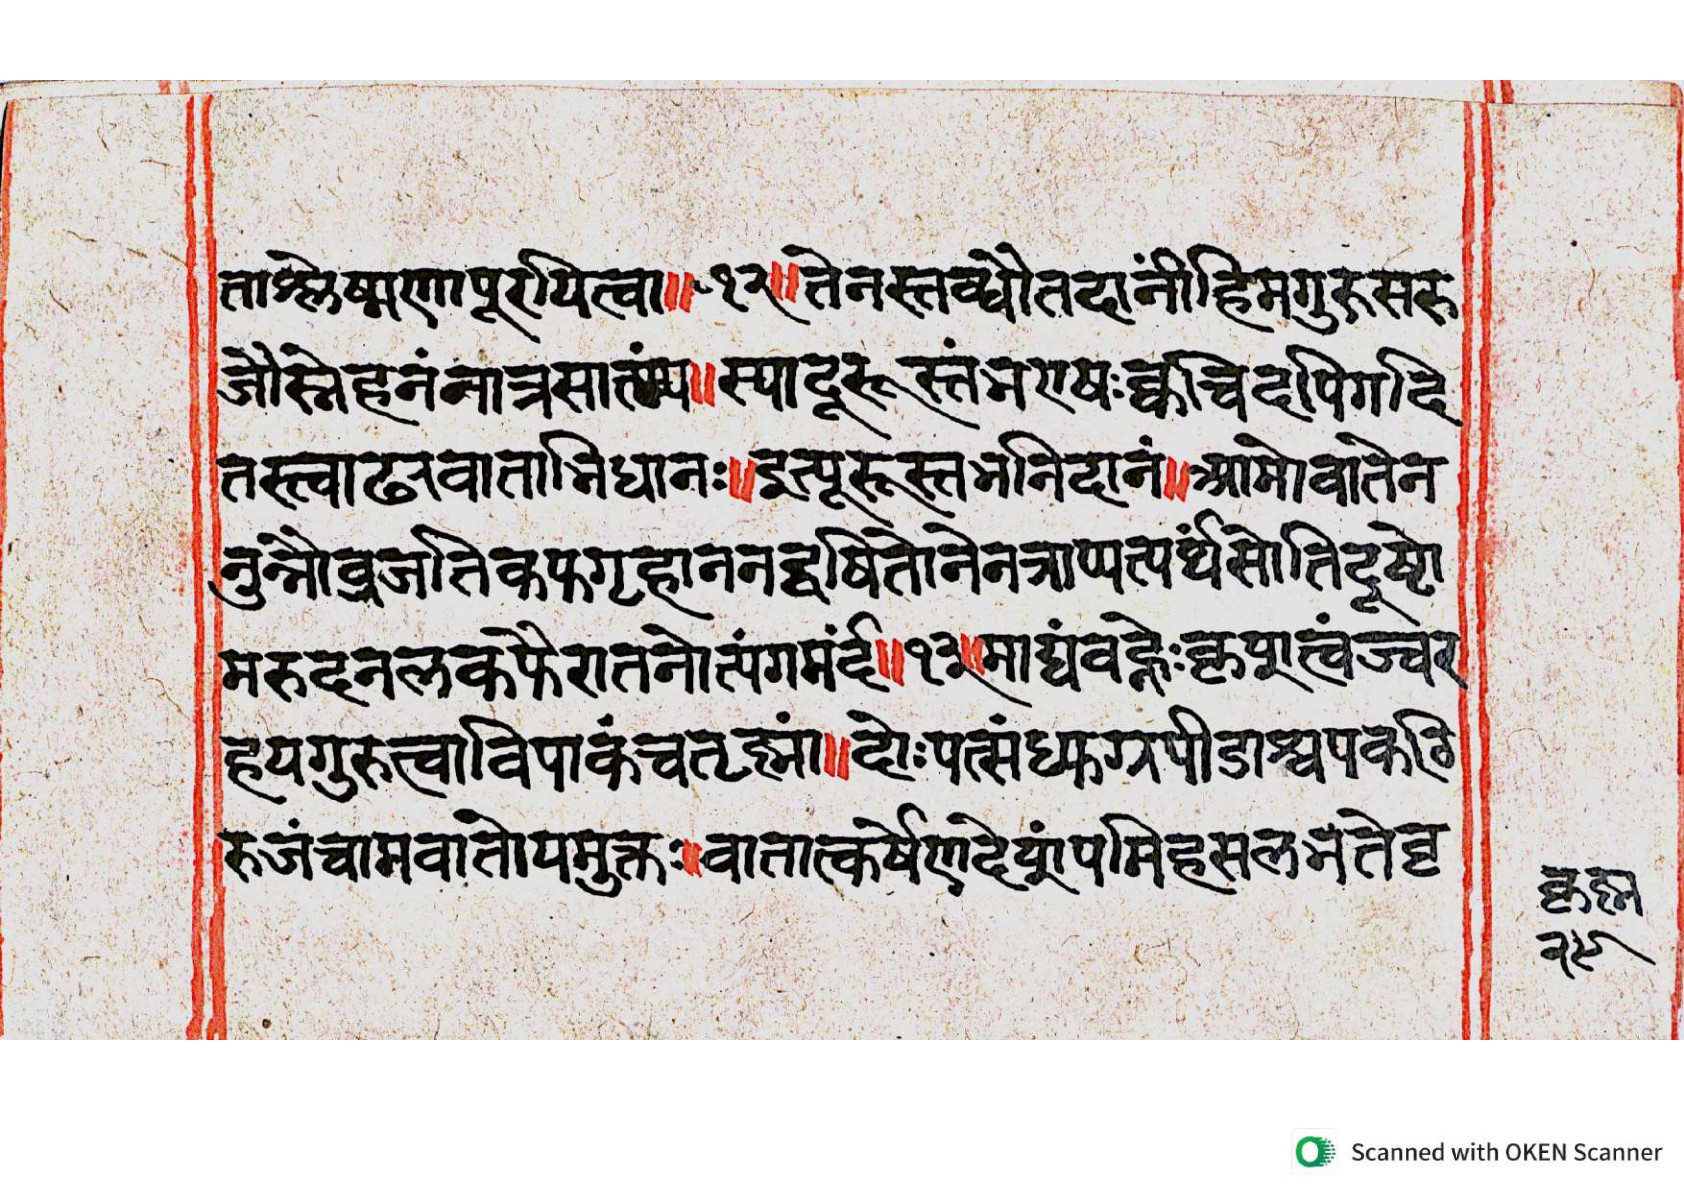 ताश्लेष्मणापूरयित्वा॥१२॥तेनस्तब्धौतदानींहिमगुरुसरु
जौस्नेहनंनात्रसात्म्य॥स्यादूरूस्तंभएषःक्वचिदपिगदि
तस्त्वाढ्यवाताभिधानः॥इत्यूरूस्तभनिदानं॥आमोवातेन
नुन्नोव्रजतिकफगृहाननद्दूषितोनेनत्राप्यत्यर्थंसोतिदूष्टो
मरुदनलकफैरातनोत्यंगमर्दं॥१३॥माद्यंवह्नेःकृष्णत्वंज्वर
हृयगुरुत्त्वाविपाकंचतृष्णां॥दोःपत्संध्यग्रपीडाश्चपकठि
रुजंचामवातोयमुक्तः॥वातात्कर्षेणदेयांपमिहसलभतेदृ
कृष्ण
२९
Scanned with OKEN Scanner